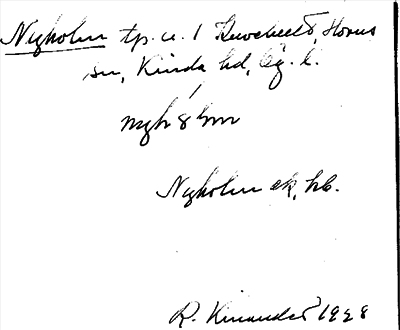 Nyholm tp. u. / Huvebult, Horns
sn, Kinda hd, Ög. l.
nyh8lm
Nyholm ek, hb.
R. Kinander 1928